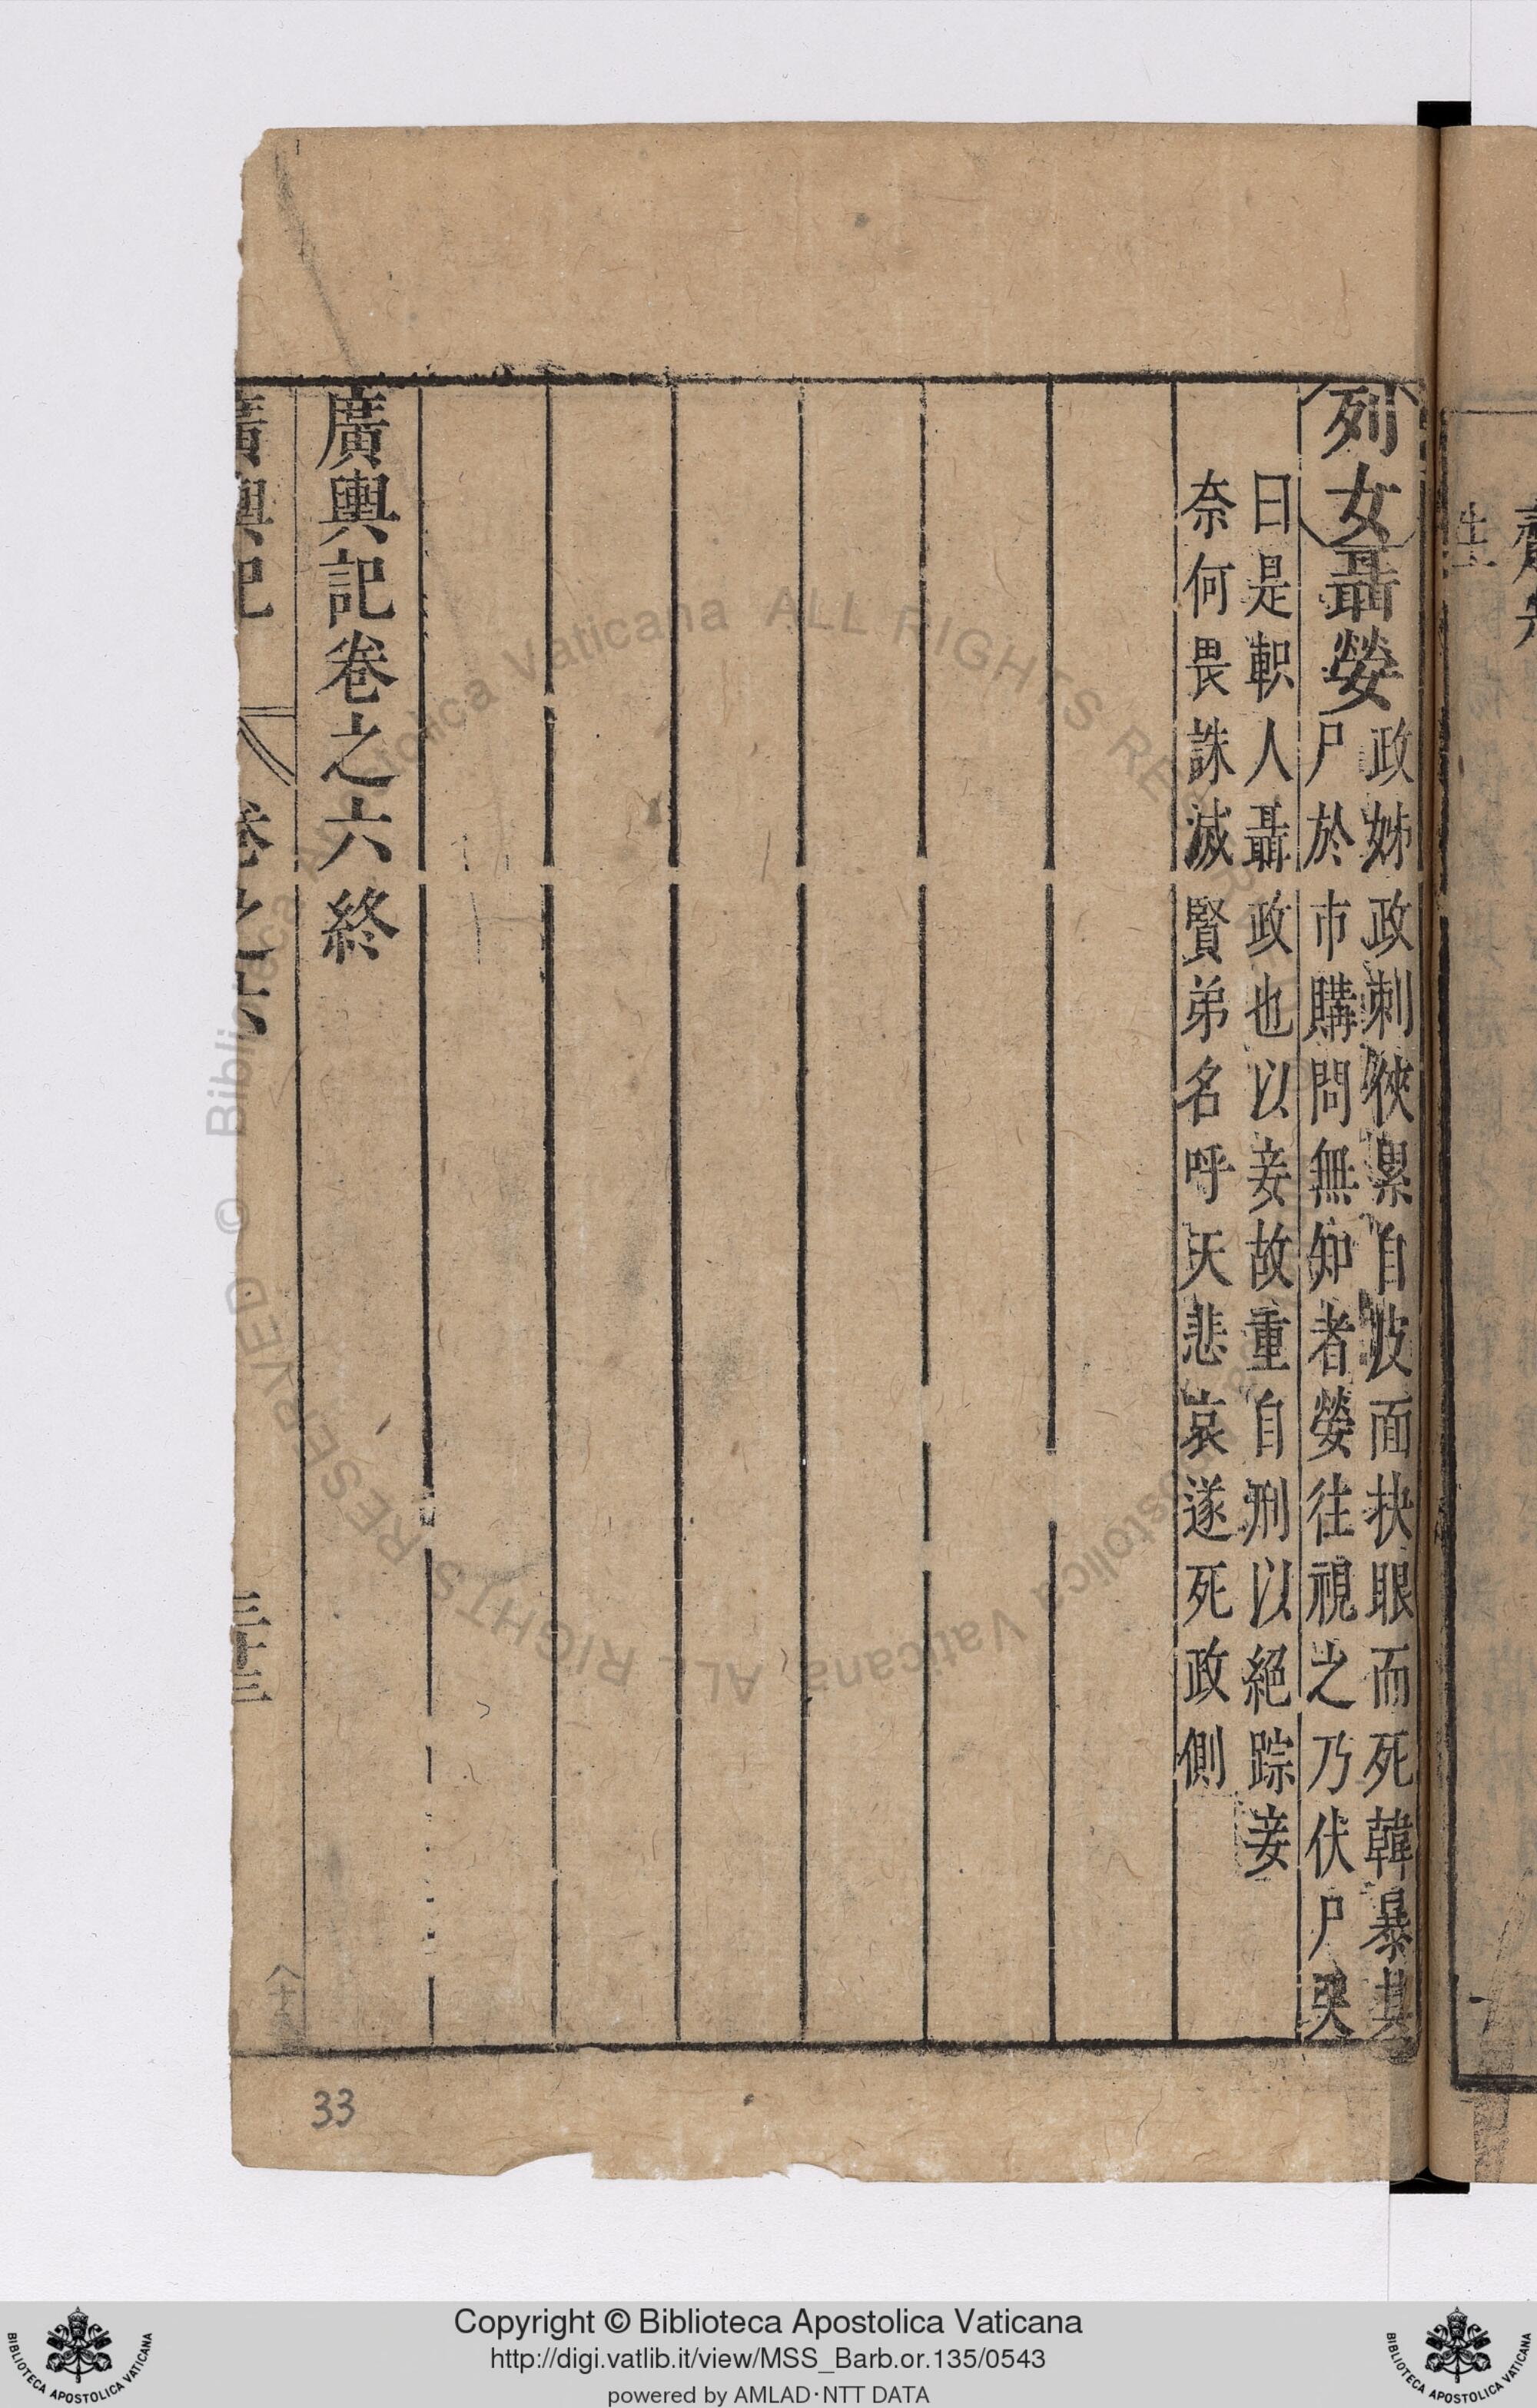 列女聶嫈政姊政刺俠累自皮面抉眼而死韓暴其
尸於市購問無知者嫈往視之乃伏尸哭
曰是軹人聶政也以妾故重自刑以絕踪妾
奈何畏誅滅賢弟名呼天悲哀遂死政側
廣輿記卷之六終
廣輿記 卷之六 三十三
33
Copyright © Biblioteca Apostolica Vaticana
http://digi.vatlib.it/view/MSS_Barb.or.135/0543
powered by AMLAD·NTT DATA
BIBLIOTECA APOSTOLICA VATICANA
BIBLIOTECA APOSTOLICA VATICANA
© Biblioteca Apostolica Vaticana ALL RIGHTS RESERVED
Biblioteca Apostolica Vaticana ALL RIGHTS RESERVED